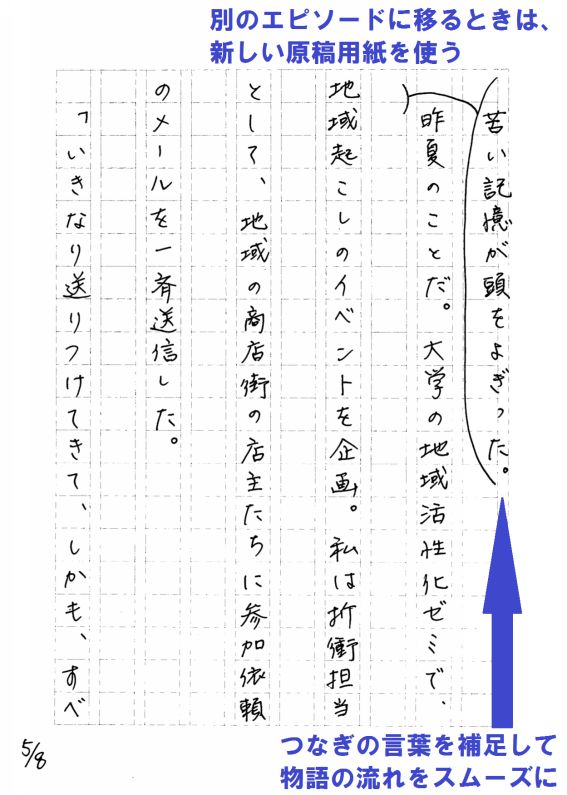 別のエピソードに移るときは、
新しい原稿用紙を使う
苦い記憶が頭をよぎった。
昨夏のことだ。大学の地域活性化ゼミで、
地域起こしのイベントを企画。私は折衝担当
として、地域の商店街の店主たちに参加依頼
のメールを一斉送信した。
「いきなり送りつけてきて、しかも、すべ
つなぎの言葉を補足して
物語の流れをスムーズに
5/8